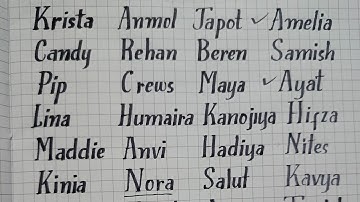 Krista Anmol Tapot ✓ Amelia
Candy Rehan Beren Samish
Pip Crews Maya ✓ Ayat
Lina Humaira Kanojiya Hifza
Maddie Anvi Hadiya Nites
Kinia Nora Salut Kavya